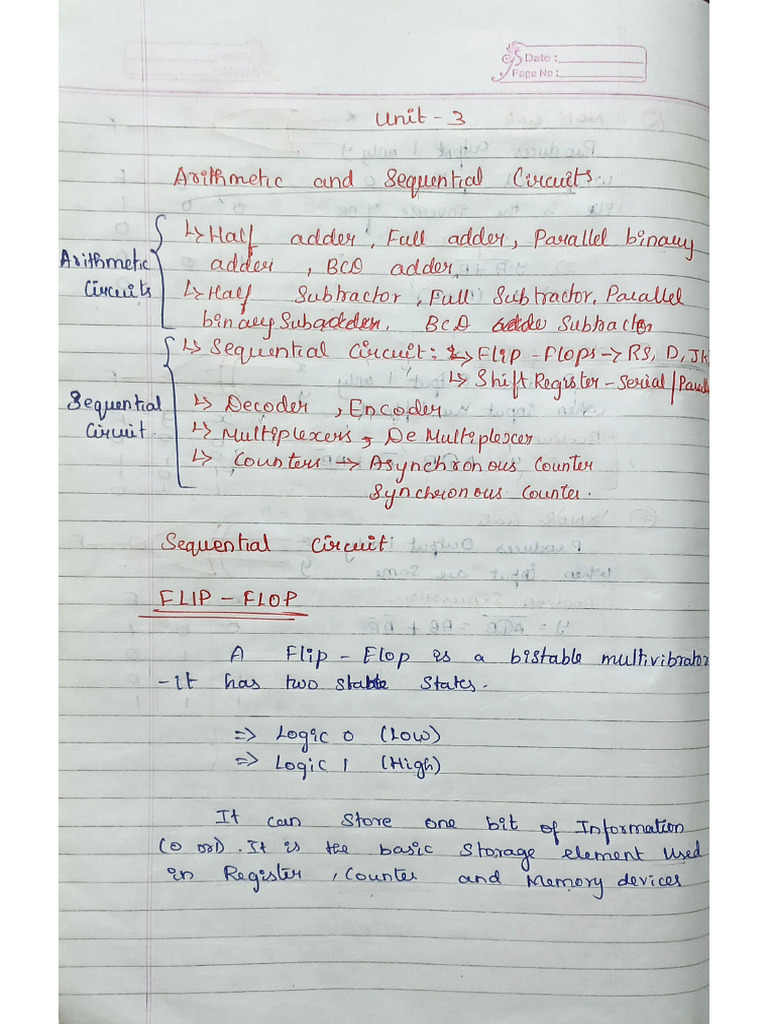 Date :
Page No :
Unit - 3
Arithmetic and Sequential Circuits
Arithmetic Circuits
↳ Half adder, Full adder, Parallel binary
adder, BCD adder
↳ Half Subtractor, Full Subtractor, Parallel
binary Subadder. BCD Subtractor
Sequential Circuit.
↳ Sequential Circuit: ↳ Flip - Flops → RS, D, JK
↳ Shift Register - Serial / Parall
↳ Decoder, Encoder
↳ Multiplexers, De Multiplexer
↳ Counters → Asynchronous Counter
Synchronous Counter.
Sequential Circuit
FLIP - FLOP
A Flip - Flop is a bistable multivibrator
- it has two stable States.
⇒ Logic 0 (Low)
⇒ Logic 1 (High)
It can Store one bit of Information
(0 or 1). It is the basic Storage element Used
in Register, Counter and Memory devices